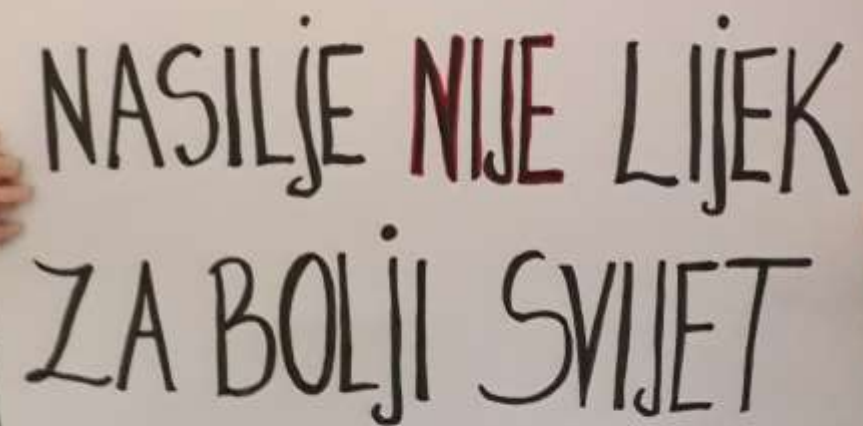 NASILjE NIJE LIjEK
ZA BOLjI SVIJET